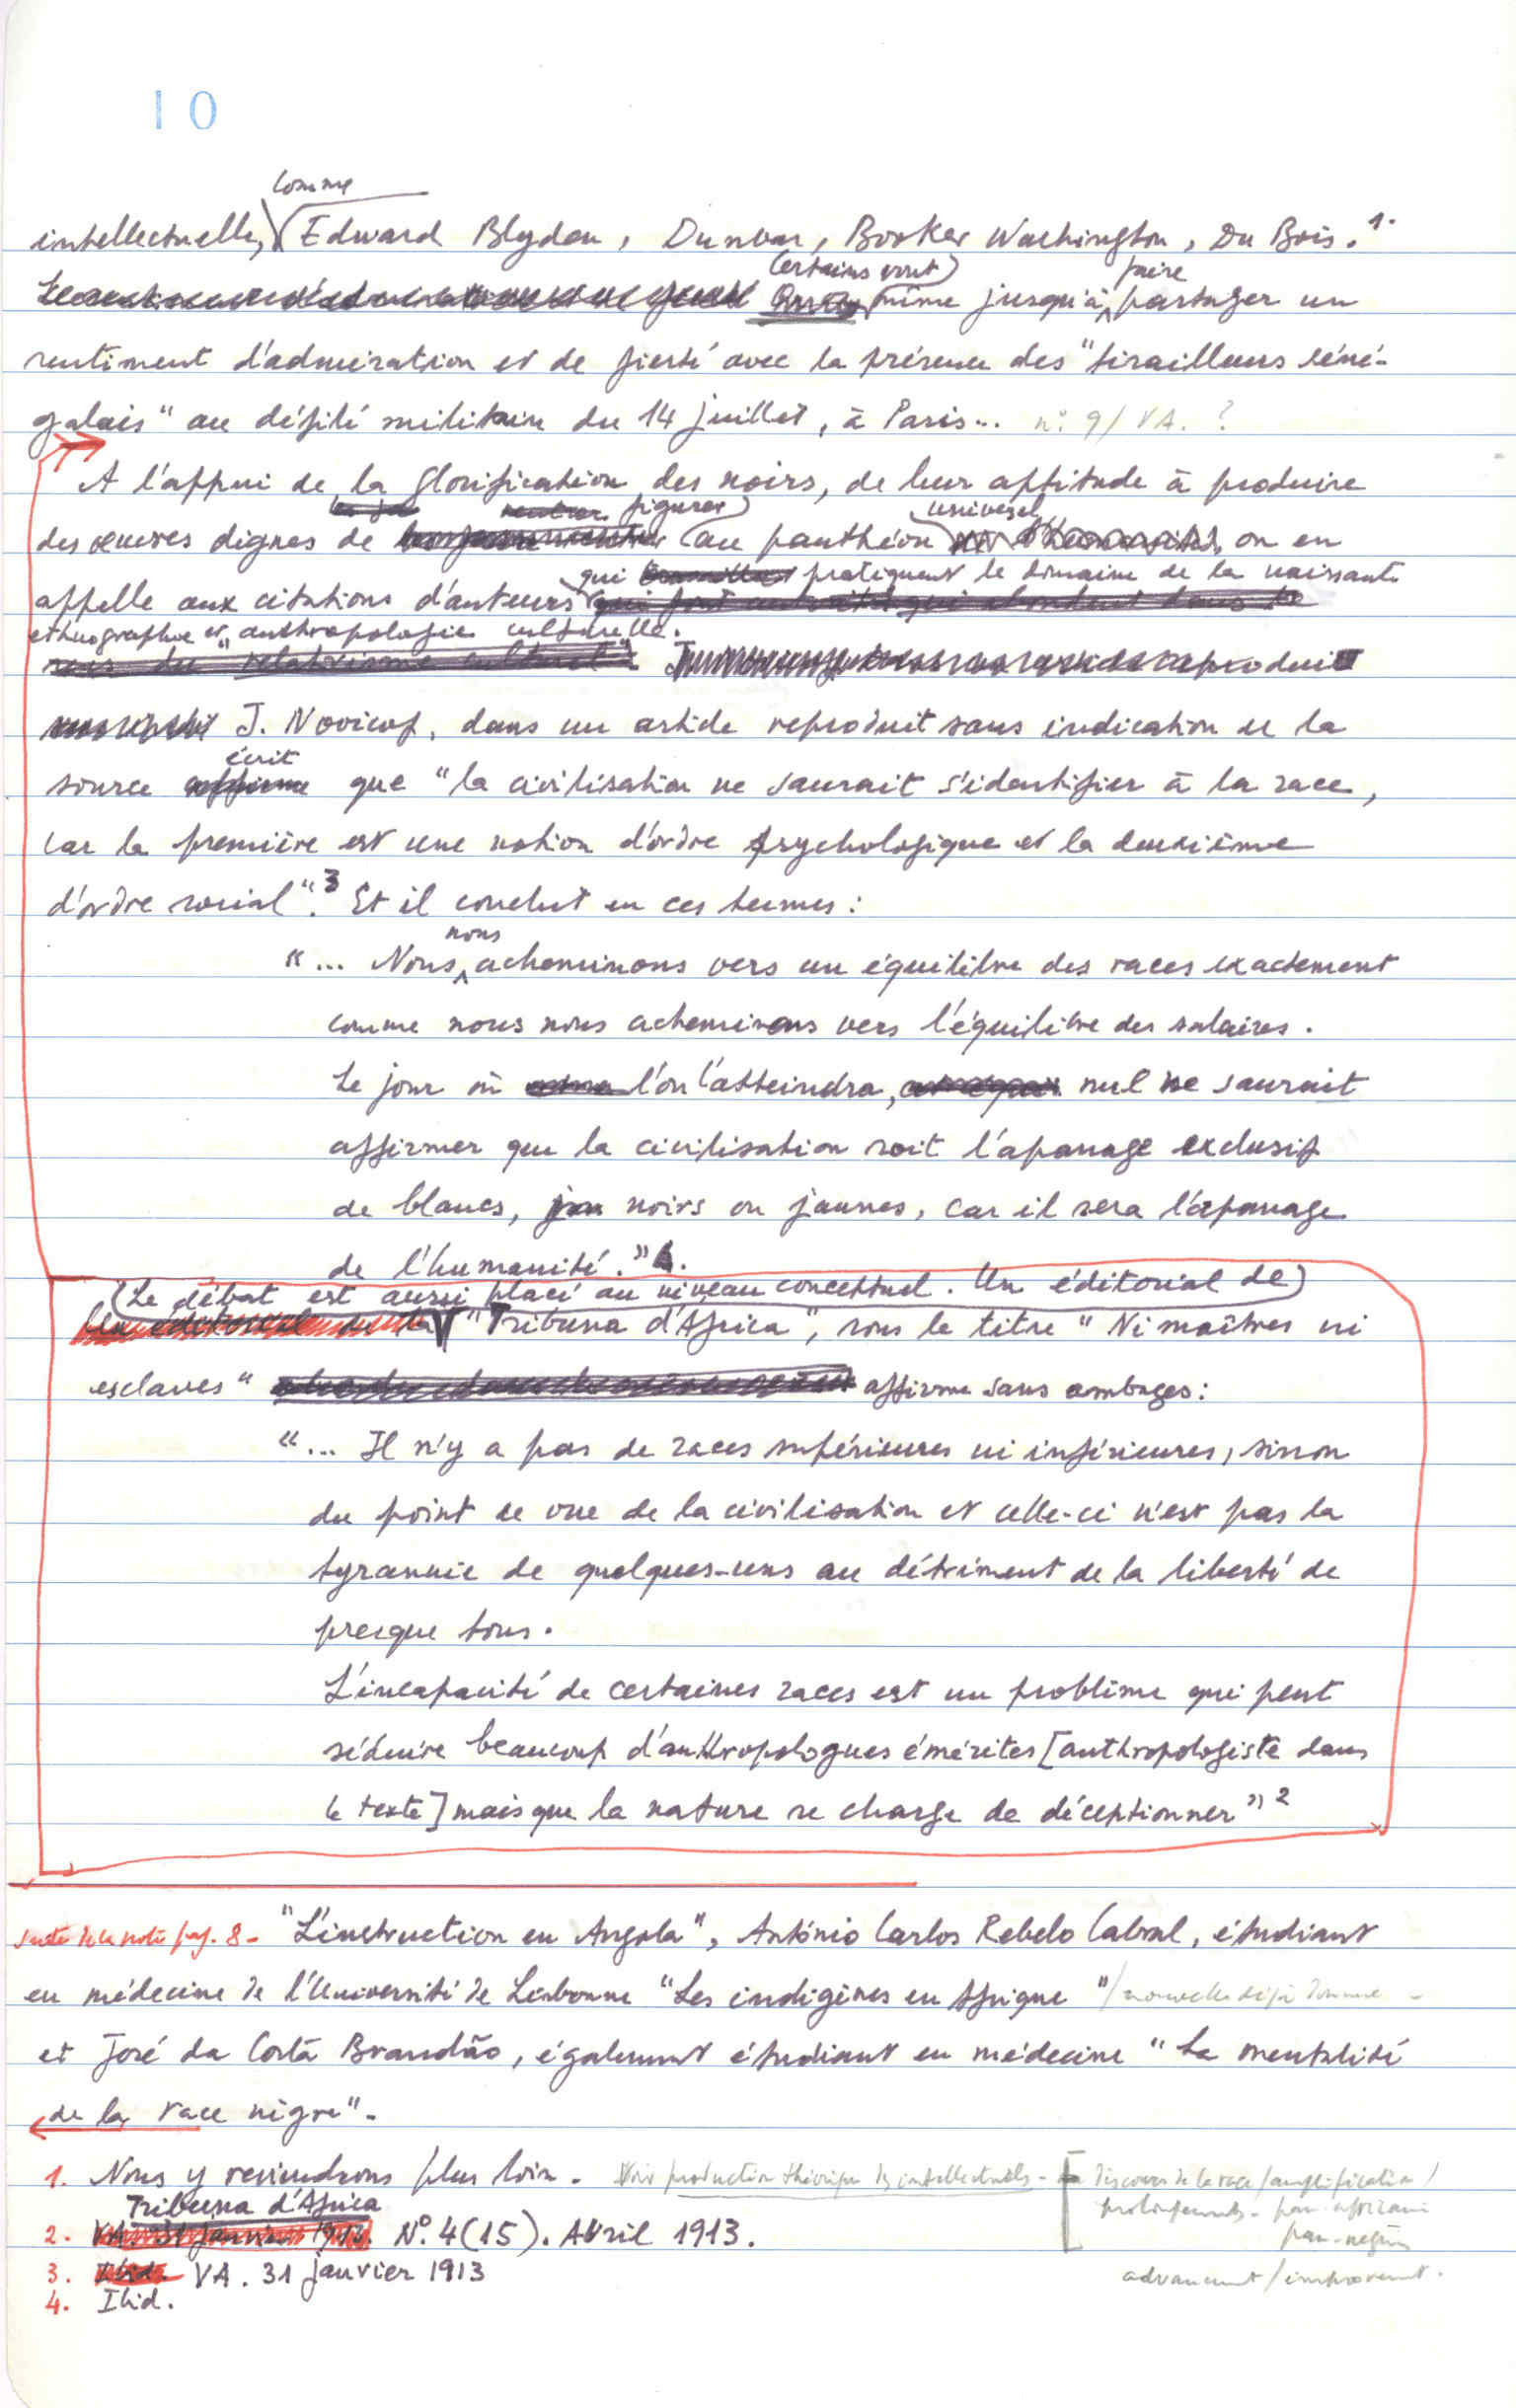 10
comme
intellectuelle, Edward Blyden, Dunbar, Booker Washington, Du Bois. 1.
Certains vont faire
même jusqu'à partager un
sentiment d'admiration et de fierté avec la présence des "tirailleurs séné-
galais" au défilé militaire du 14 juillet, à Paris... nº 9/VA. ?
A l'appui de la glorification des noirs, de leur aptitude à produire
figurer universel
des œuvres dignes de au panthéon on en
qui pratiquent le domaine de la naissante
appelle aux citations d'auteurs
ethnographie et anthropologie culturelle.
sens du "relativisme culturel"
J. Novicof, dans un article reproduit sans indication de la
écrit
source affirme que "la civilisation ne saurait s'identifier à la race,
car la première est une notion d'ordre psychologique et la deuxième
d'ordre social". 3 Et il conclut en ces termes :
nous
"... Nous acheminons vers un équilibre des races exactement
comme nous nous acheminons vers l'équilibre des salaires.
Le jour où l'on l'atteindra, nul ne saurait
affirmer que la civilisation soit l'apanage exclusif
de blancs, noirs ou jaunes, car il sera l'apanage
de l'humanité." 4.
(Le débat est aussi placé au niveau conceptuel. Un éditorial de)
Un éditorial de la "Tribuna d'Africa", sous le titre "Ni maîtres ni
esclaves" affirme sans ambages :
"... Il n'y a pas de races supérieures ni inférieures, sinon
du point de vue de la civilisation et celle-ci n'est pas la
tyrannie de quelques-uns au détriment de la liberté de
presque tous.
L'incapacité de certaines races est un problème qui peut
séduire beaucoup d'anthropologues émérites [anthropologiste dans
le texte] mais que la nature se charge de déceptionner" 2
suite de la note pag. 8 - "L'instruction en Angola", António Carlos Rebelo Cabral, étudiant
en médecine de l'Université de Lisbonne "Les indigènes en Afrique"/
et José da Costa Brandão, également étudiant en médecine "La mentalité
de la race nègre".
1. Nous y reviendrons plus loin. Voir production théorique des intellectuels - Discours de la race/amplification/
prolongements - pan-africain
pan-nègre
Tribuna d'Africa
2. VA. 31 janvier 1913. Nº. 4 (15). Avril 1913.
3. Ibid. VA. 31 janvier 1913
advancement/improvement.
4. Ibid.